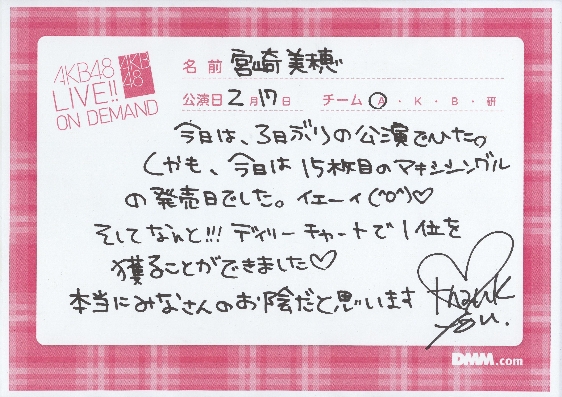 AKB48
LIVE!!
ON DEMAND
AKB
48
名前 宮崎美穂
公演日 2月17日 チーム Ⓐ・K・B・研
今日は、3日ぶりの公演でした。
しかも、今日は15枚目のマキシシングル
の発売日でした。イエーイ(^o^)♡
そしてなんと!!!デイリーチャートで1位を
獲ることができました♡
本当にみなさんのお陰だと思います
thank
you.
DMM.com